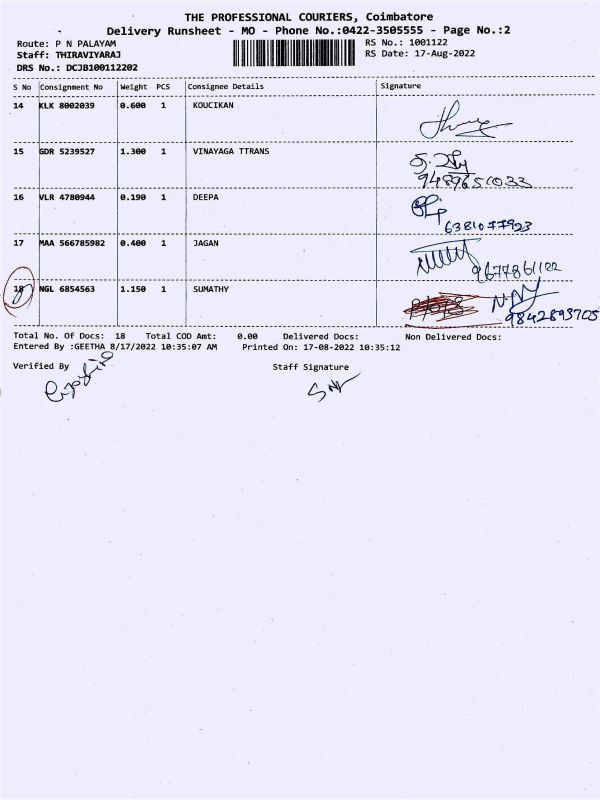 THE PROFESSIONAL COURIERS, Coimbatore
Delivery Runsheet - MO - Phone No.:0422-3505555 - Page No.:2
Route: P N PALAYAM
Staff: THIRAVIYARAJ
DRS No.: DCJB100112202
RS No.: 1001122
RS Date: 17-Aug-2022
S No Consignment No Weight PCS Consignee Details Signature
14 KLK 8002039 0.600 1 KOUCIKAN
15 GDR 5239527 1.300 1 VINAYAGA TTRANS
9489651033
16 VLR 4780944 0.190 1 DEEPA
6381077923
17 MAA 566785982 0.400 1 JAGAN
9677861122
18 NGL 6854563 1.150 1 SUMATHY
9842893705
Total No. Of Docs: 18 Total COD Amt: 0.00 Delivered Docs: Non Delivered Docs:
Entered By :GEETHA 8/17/2022 10:35:07 AM Printed On: 17-08-2022 10:35:12
Verified By Staff Signature